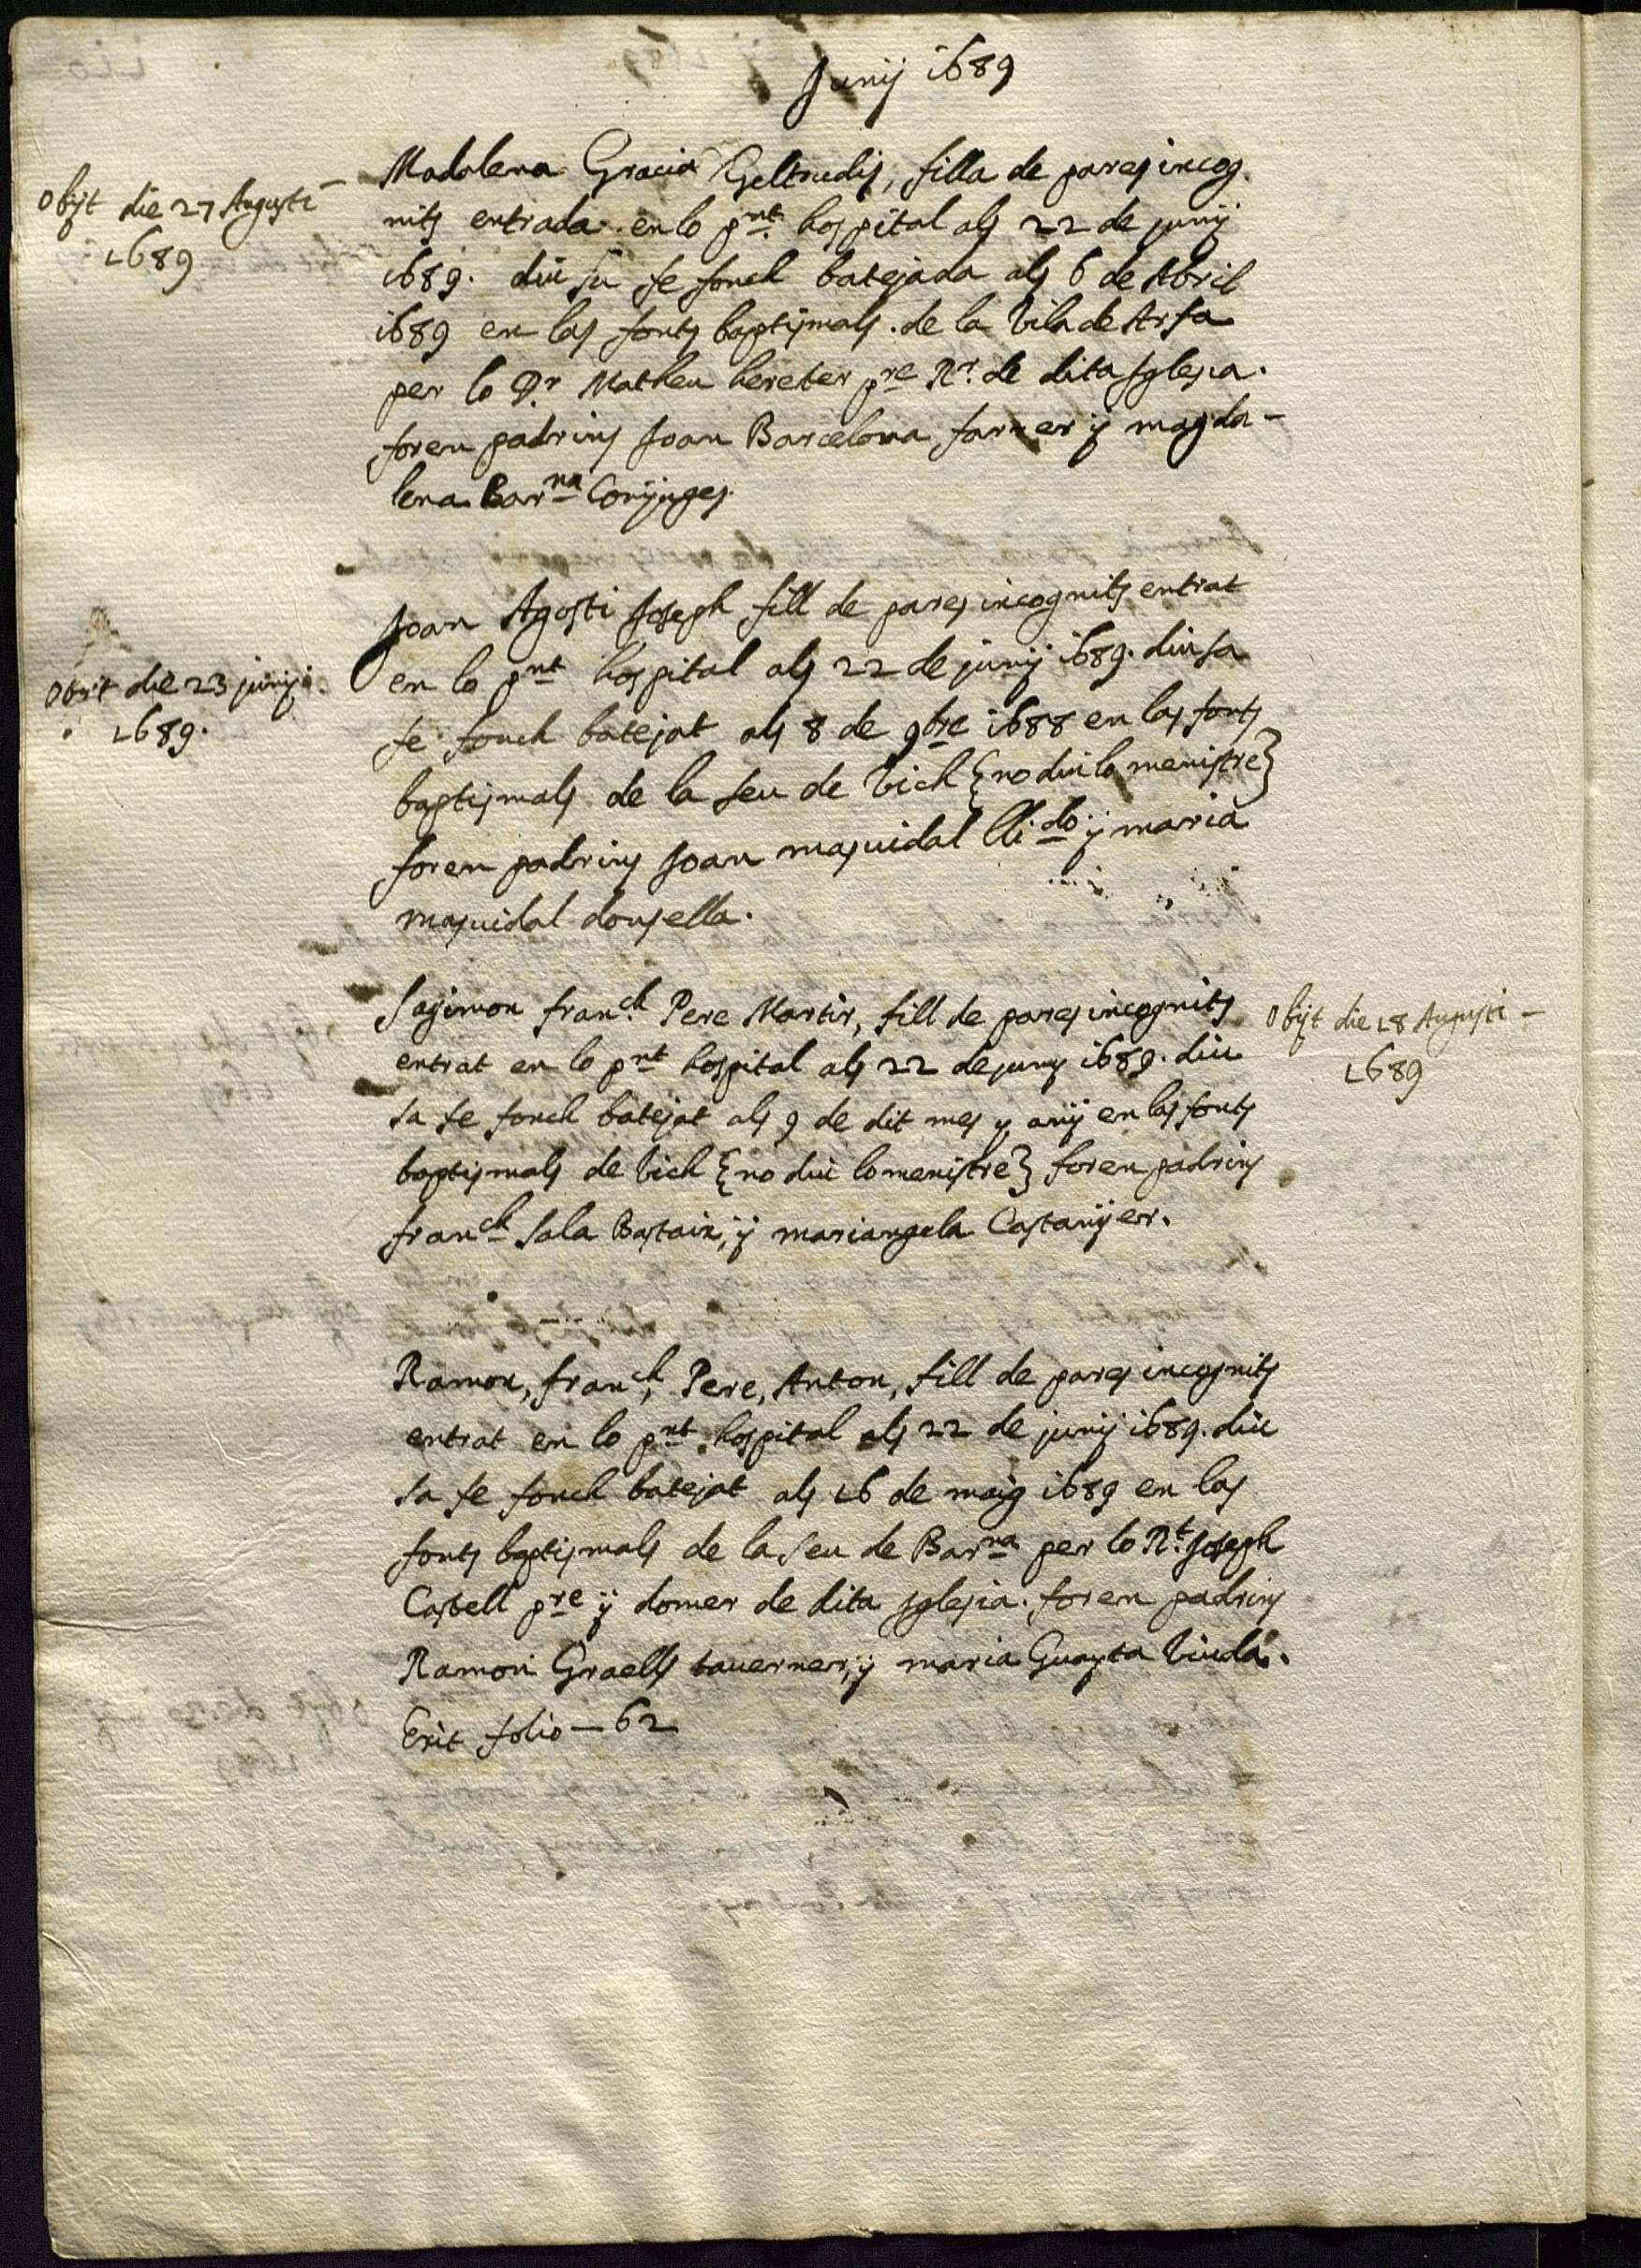 Junij 1689
Madalena Gracia Geltrudis, filla de pares incog.
nits entrada en lo pnt. hospital als 22 de junij
1689. diu sa se fonch batejada als 6 de Abril
1689 en las fonts baptismals. de la vila de Arsa
per lo Dr. Matheu hereter pre Rr. de dita Iglesia.
foren padrins Joan Barcelona farrer ÿ magda-
lena Barna Conjuges.
Obijt die 27 Augusti
1689
Joan Agosti Joseph fill de pares incognits entrat
en lo pnt hospital als 22 de junij 1689. diu sa
se fonch batejat als 8 de 9bre 1688 en las fonts
baptismals de la seu de Vich {no diu lo menistre}
foren padrins Joan masvidal lli do ÿ maria
masvidal donsella.
Obijt die 23 junij
1689.
Sagimon franch. Pere Martir, fill de pares incognits
entrat en lo pnt hospital als 22 de juny 1689. diu
sa se fonch batejat als 9 de dit mes y anÿ en las fonts
baptismals de Vich {no diu lo menistre} foren padrins
franch Sala Bastaix, ÿ mariangela Castanÿer.
Obijt die 18 Augusti -
1689
Ramon, franch, Pere, Anton, fill de pares incognits
entrat en lo pnt hospital als 22 de junij 1689. diu
sa se fonch batejat als 16 de maig 1689 en las
fonts baptismals de la seu de Barna per lo Rt. Joseph
Castell pre ÿ domer de dita Iglesia. foren padrins
Ramon Graells taverner, ÿ maria Guayta viuda.
Exit folio - 62